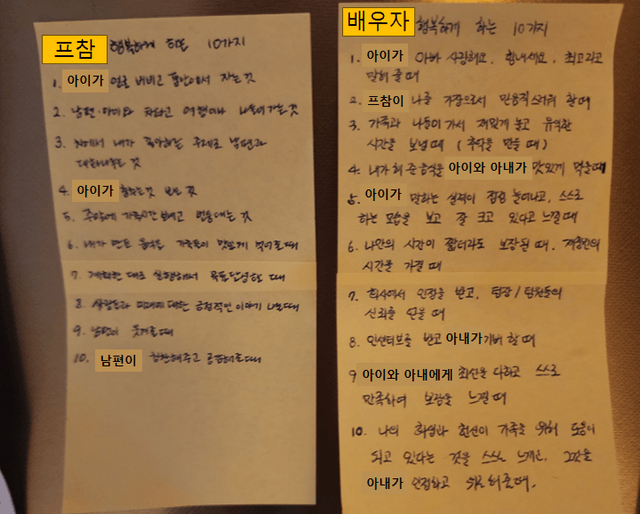 프참 행복하게 하는 10가지
1. 아이가 얼굴 비비고 품안에서 자는 것
2. 남편·아이와 차타고 여행이나 나들이 가는 것
3. 차에서 내가 좋아하는 주제로 남편과
대화나누는 것
4. 아이가 보는 것
5. 주말에 가족시간 보내고
6. 내가 만든 음식을 가족들이 맛있게 먹어줄때
7. 계획한 대로 실행해서 목표달성할 때
8. 사람들과 미래에 대한 긍정적인 이야기 나눌때
9. 남편이 웃겨줄때
10. 남편이 칭찬해주고 공감해줄때
배우자 행복하게 하는 10가지
1. 아이가 아빠 사랑해요, 힘내세요, 최고라고
말해 줄 때
2. 프참이 나를 가장으로서 만족스러워 할 때
3. 가족과 나들이 가서 재밌게 놀고 유익한
시간을 보낼 때 (추억을 만들 때)
4. 내가 해 준 음식을 아이와 아내가 맛있게 먹을때
5. 아이가 말하는 실력이 점점 늘어나고, 스스로
하는 모습을 보고 잘 크고 있다고 느낄 때
6. 나만의 시간이 짧더라도 보장될 때, 개인의
시간을 가질 때
7. 회사에서 인정을 받고, 팀장/팀원들의
신뢰를 얻을 때
8. 인센티브를 받고 아내가 기뻐 할 때
9 아이와 아내에게 최선을 다하고 스스로
만족하여 보람을 느낄 때
10. 나의 희생과 헌신이 가족을 위해 도움이
되고 있다는 것을 스스로 느끼고, 그것을
아내가 인정하고 해줄때.